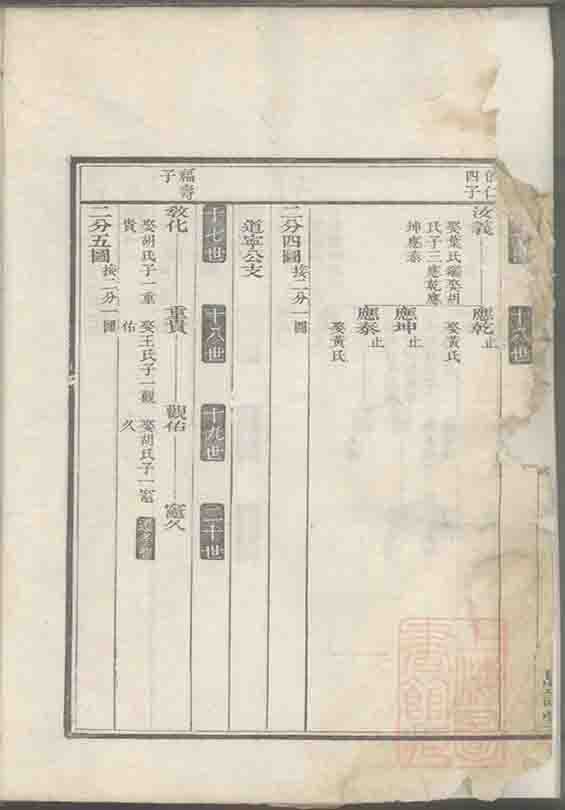 十八世
四子
汝義
娶葉氏繼娶胡
氏子三應乾應
坤應泰
應乾止
娶黃氏
應坤止
應泰止
娶黃氏
二分四圖 按二分一圖
道寧公支
十七世
十八世
十九世
二十世
福壽
子
敎化
娶胡氏子一重
貴
重貴
娶王氏子一觀
佑
觀佑
娶胡氏子一甯
久
甯久
二分五圖 按二分一圖